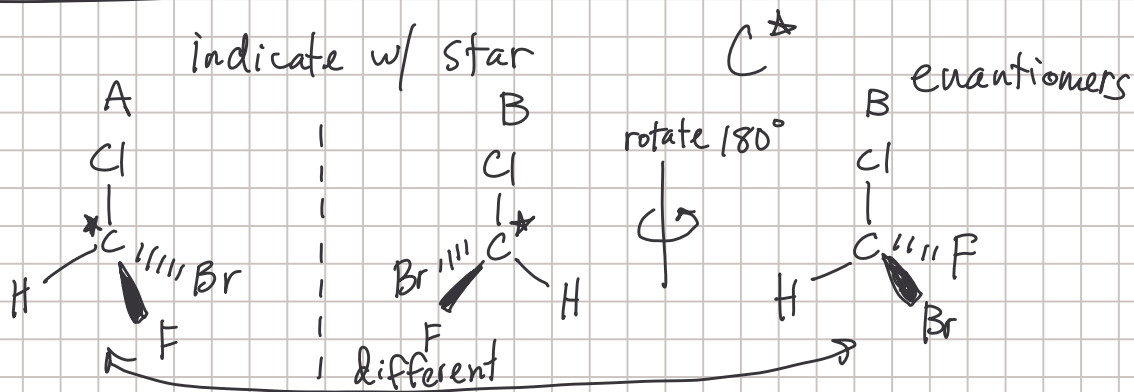 indicate w/ star
C*
enantiomers
A
Cl
* C
H
Br
F
B
Cl
C *
Br
H
F
rotate 180°
B
Cl
C
F
H
Br
different